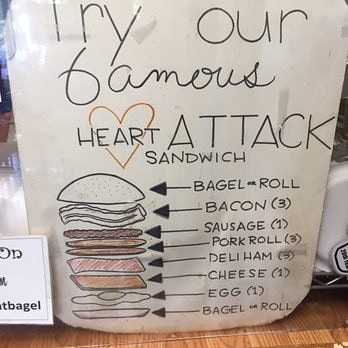 Try our
famous
HEART ATTACK
SANDWICH
BAGEL OR ROLL
BACON (3)
SAUSAGE (1)
PORK ROLL (3)
DELI HAM (3)
CHEESE (1)
EGG (1)
BAGEL OR ROLL
On
M
tbagel